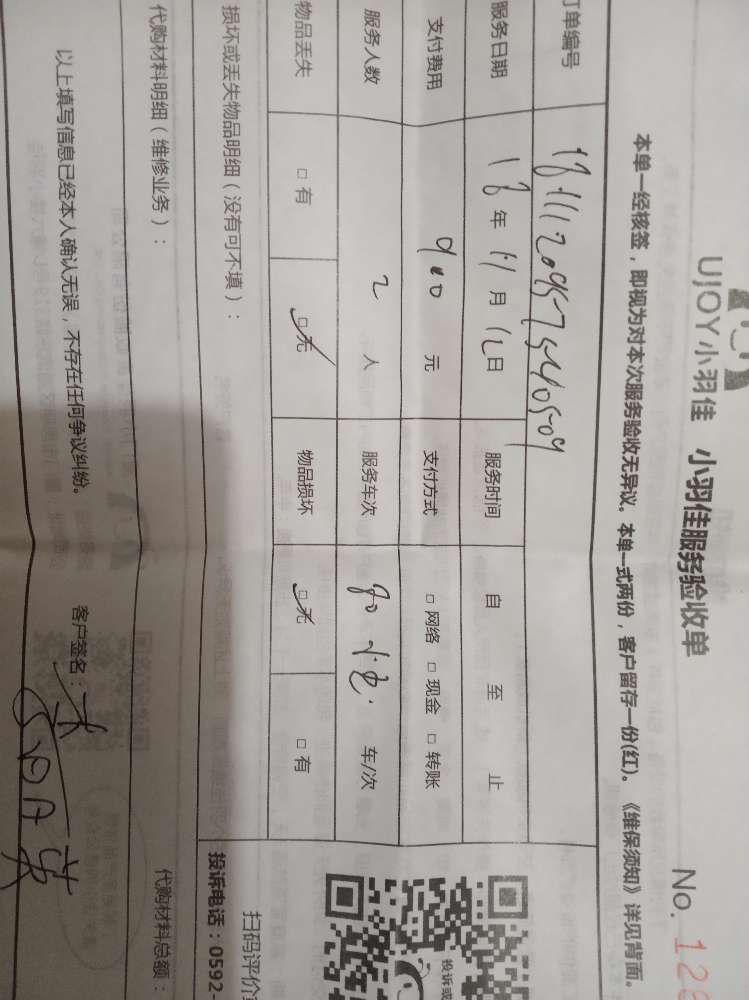 UJOY小羽佳 小羽佳服务验收单
No. 128
本单一经核签，即视为对本次服务验收无异议。本单一式两份，客户留存一份(红)。《维保须知》详见背面。
订单编号
服务日期 18 年 11 月 12 日 服务时间 自 至 止
支付费用 900 元 支付方式 □ 网络 □ 现金 □ 转账
服务人数 2 人 服务车次 车/次
物品丢失 □ 有 □ 无 物品损坏 □ 无 □ 有
损坏或丢失物品明细（没有可不填）：
代购材料明细（维修业务）： 代购材料总额：
以上填写信息已经本人确认无误，不存在任何争议纠纷。 客户签名：
投诉或
扫码评价
投诉电话：0592-